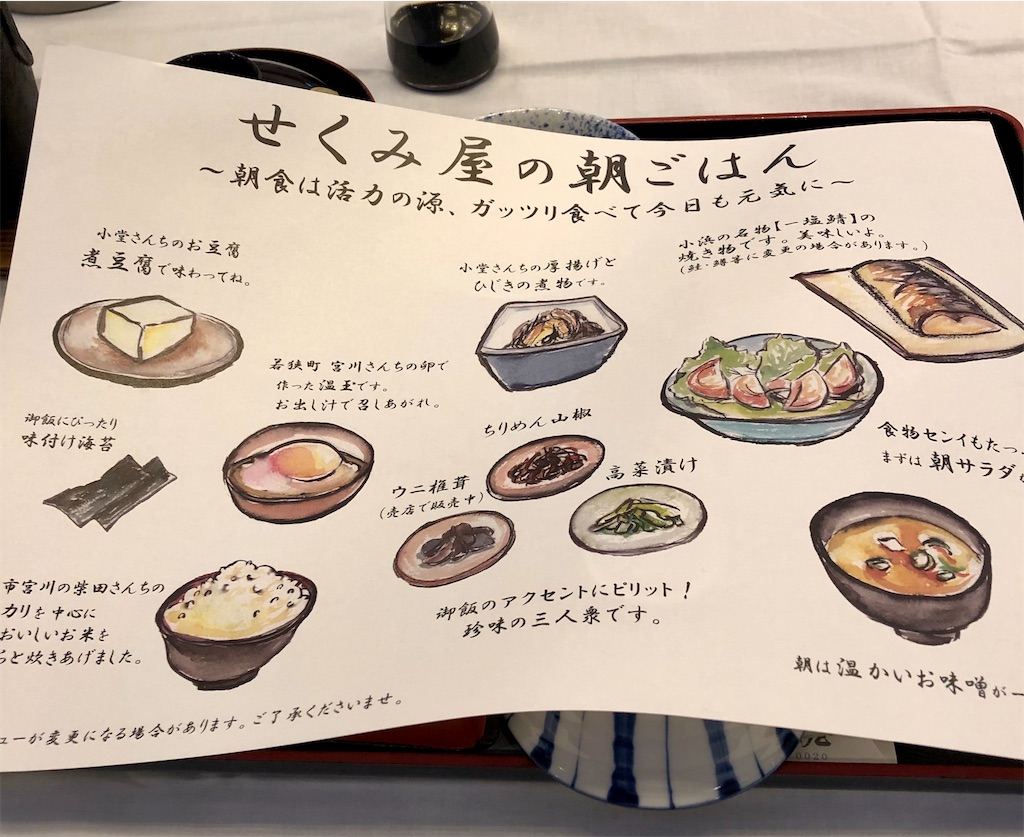 せくみ屋の朝ごはん
～朝食は活力の源、ガッツリ食べて今日も元気に～
小堂さんちのお豆腐
煮豆腐で味わってね。
小堂さんちの厚揚げと
ひじきの煮物です。
小浜の名物【一塩鯖】の
焼き物です。美味しいよ。
(鮭・鱒等に変更の場合があります。)
若狭町 宮川さんちの卵で
作った温玉です。
お出し汁で召しあがれ。
御飯にぴったり
味付け海苔
ちりめん山椒
ウニ椎茸
(売店で販売中)
高菜漬け
食物センイもたっ
まずは 朝サラダ
御飯のアクセントにピリット!
珍味の三人衆です。
市宮川の柴田さんちの
カリを中心に
おいしいお米を
と炊きあげました。
朝は温かいお味噌が一
ューが変更になる場合があります。ご了承くださいませ。
0020